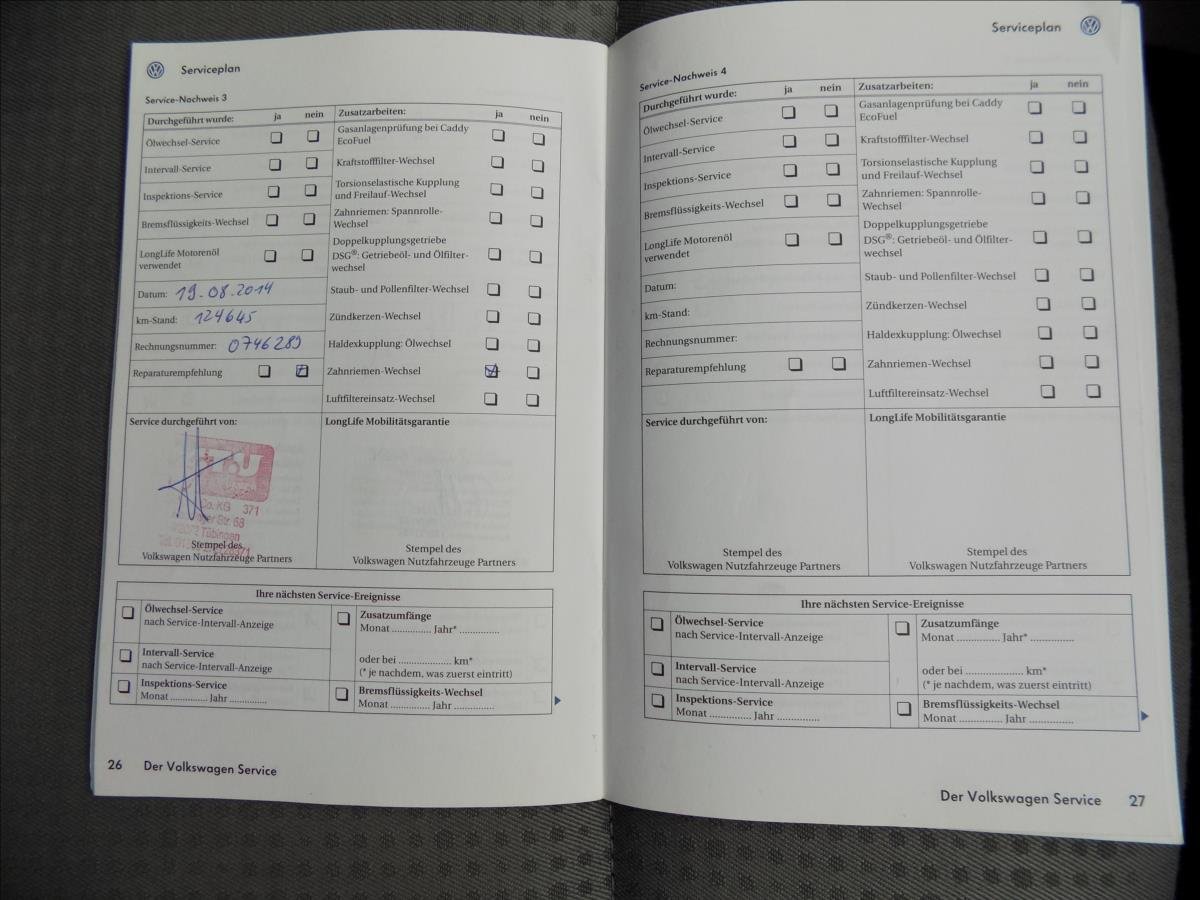 Serviceplan
Service-Nachweis 3
Durchgeführt wurde: ja nein
Ölwechsel-Service
Intervall-Service
Inspektions-Service
Bremsflüssigkeits-Wechsel
LongLife Motorenöl
verwendet
Datum: 19.08.2014
km-Stand: 124645
Rechnungsnummer: 0746289
Reparaturempfehlung
Zusatzarbeiten: ja nein
Gasanlagenprüfung bei Caddy
EcoFuel
Kraftstofffilter-Wechsel
Torsionselastische Kupplung
und Freilauf-Wechsel
Zahnriemen: Spannrolle-
Wechsel
Doppelkupplungsgetriebe
DSG®: Getriebeöl- und Ölfilter-
wechsel
Staub- und Pollenfilter-Wechsel
Zündkerzen-Wechsel
Haldexkupplung: Ölwechsel
Zahnriemen-Wechsel
Luftfiltereinsatz-Wechsel
Service durchgeführt von:
Co. KG 371
Str. 68
Tübingen
Stempel des
Volkswagen Nutzfahrzeuge Partners
LongLife Mobilitätsgarantie
Stempel des
Volkswagen Nutzfahrzeuge Partners
Ihre nächsten Service-Ereignisse
Ölwechsel-Service
nach Service-Intervall-Anzeige
Intervall-Service
nach Service-Intervall-Anzeige
Inspektions-Service
Monat ............. Jahr .............
Zusatzumfänge
Monat .............. Jahr* ..............
oder bei .................... km*
(* je nachdem, was zuerst eintritt)
Bremsflüssigkeits-Wechsel
Monat .............. Jahr ..............
26 Der Volkswagen Service
Serviceplan
Service-Nachweis 4
Durchgeführt wurde: ja nein
Ölwechsel-Service
Intervall-Service
Inspektions-Service
Bremsflüssigkeits-Wechsel
LongLife Motorenöl
verwendet
Datum:
km-Stand:
Rechnungsnummer:
Reparaturempfehlung
Zusatzarbeiten: ja nein
Gasanlagenprüfung bei Caddy
EcoFuel
Kraftstofffilter-Wechsel
Torsionselastische Kupplung
und Freilauf-Wechsel
Zahnriemen: Spannrolle-
Wechsel
Doppelkupplungsgetriebe
DSG®: Getriebeöl- und Ölfilter-
wechsel
Staub- und Pollenfilter-Wechsel
Zündkerzen-Wechsel
Haldexkupplung: Ölwechsel
Zahnriemen-Wechsel
Luftfiltereinsatz-Wechsel
Service durchgeführt von:
Stempel des
Volkswagen Nutzfahrzeuge Partners
LongLife Mobilitätsgarantie
Stempel des
Volkswagen Nutzfahrzeuge Partners
Ihre nächsten Service-Ereignisse
Ölwechsel-Service
nach Service-Intervall-Anzeige
Intervall-Service
nach Service-Intervall-Anzeige
Inspektions-Service
Monat .............. Jahr ..............
Zusatzumfänge
Monat .............. Jahr* ..............
oder bei .................... km*
(* je nachdem, was zuerst eintritt)
Bremsflüssigkeits-Wechsel
Monat .............. Jahr ..............
Der Volkswagen Service 27